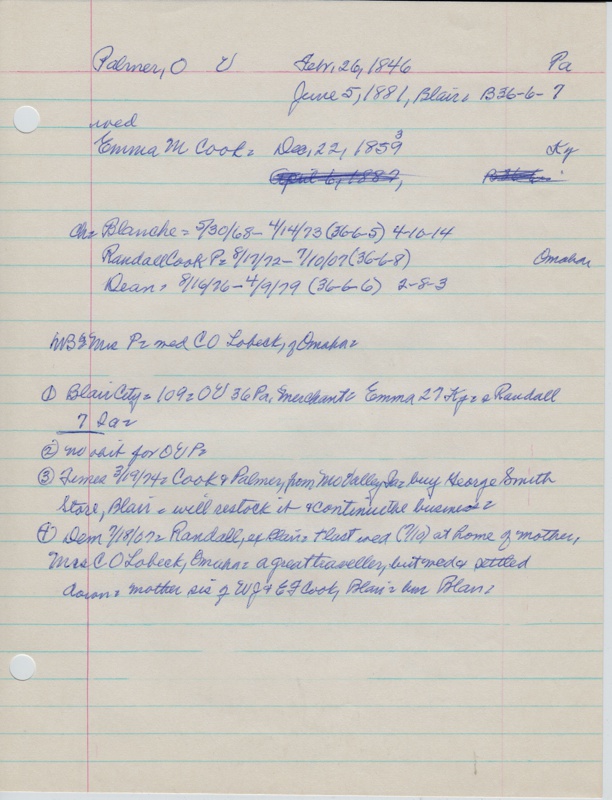 Palmer, O V Febr. 26, 1846 Pa
June 5, 1881, Blair= B36-6-7
wed
Emma M Cook= Dec, 22, 1859 3 Ky
April 6, 1887,
Ch= Blanche= 5/30/68- 4/14/73 (36-6-5) 4-10-14
Randall Cook P= 8/17/72- 7/10/07 (36-6-8) Omaha
Dean= 8/16/76- 4/9/79 (36-6-6) 2-8-3
NB= Mrs P= wed C O Lobeck, of Omaha=
① Blair City= 109= OV 36 Pa, Merchant= Emma 27 Ky= s Randall
7 Ia=
② no obit for OVP=
③ Times 3/19/74= Cook & Palmer, from Mo Valley, Ia= buy George Smith
Store, Blair= will restock it & continue the business=
④ Dem 7/18/07= Randall, ex Blair= last wed (7/10) at home of mother,
Mrs C O Lobeck, Omaha= a great traveller, but wed & settled
down= mother sis of WJ & EF Cook, Blair= bur Blair=